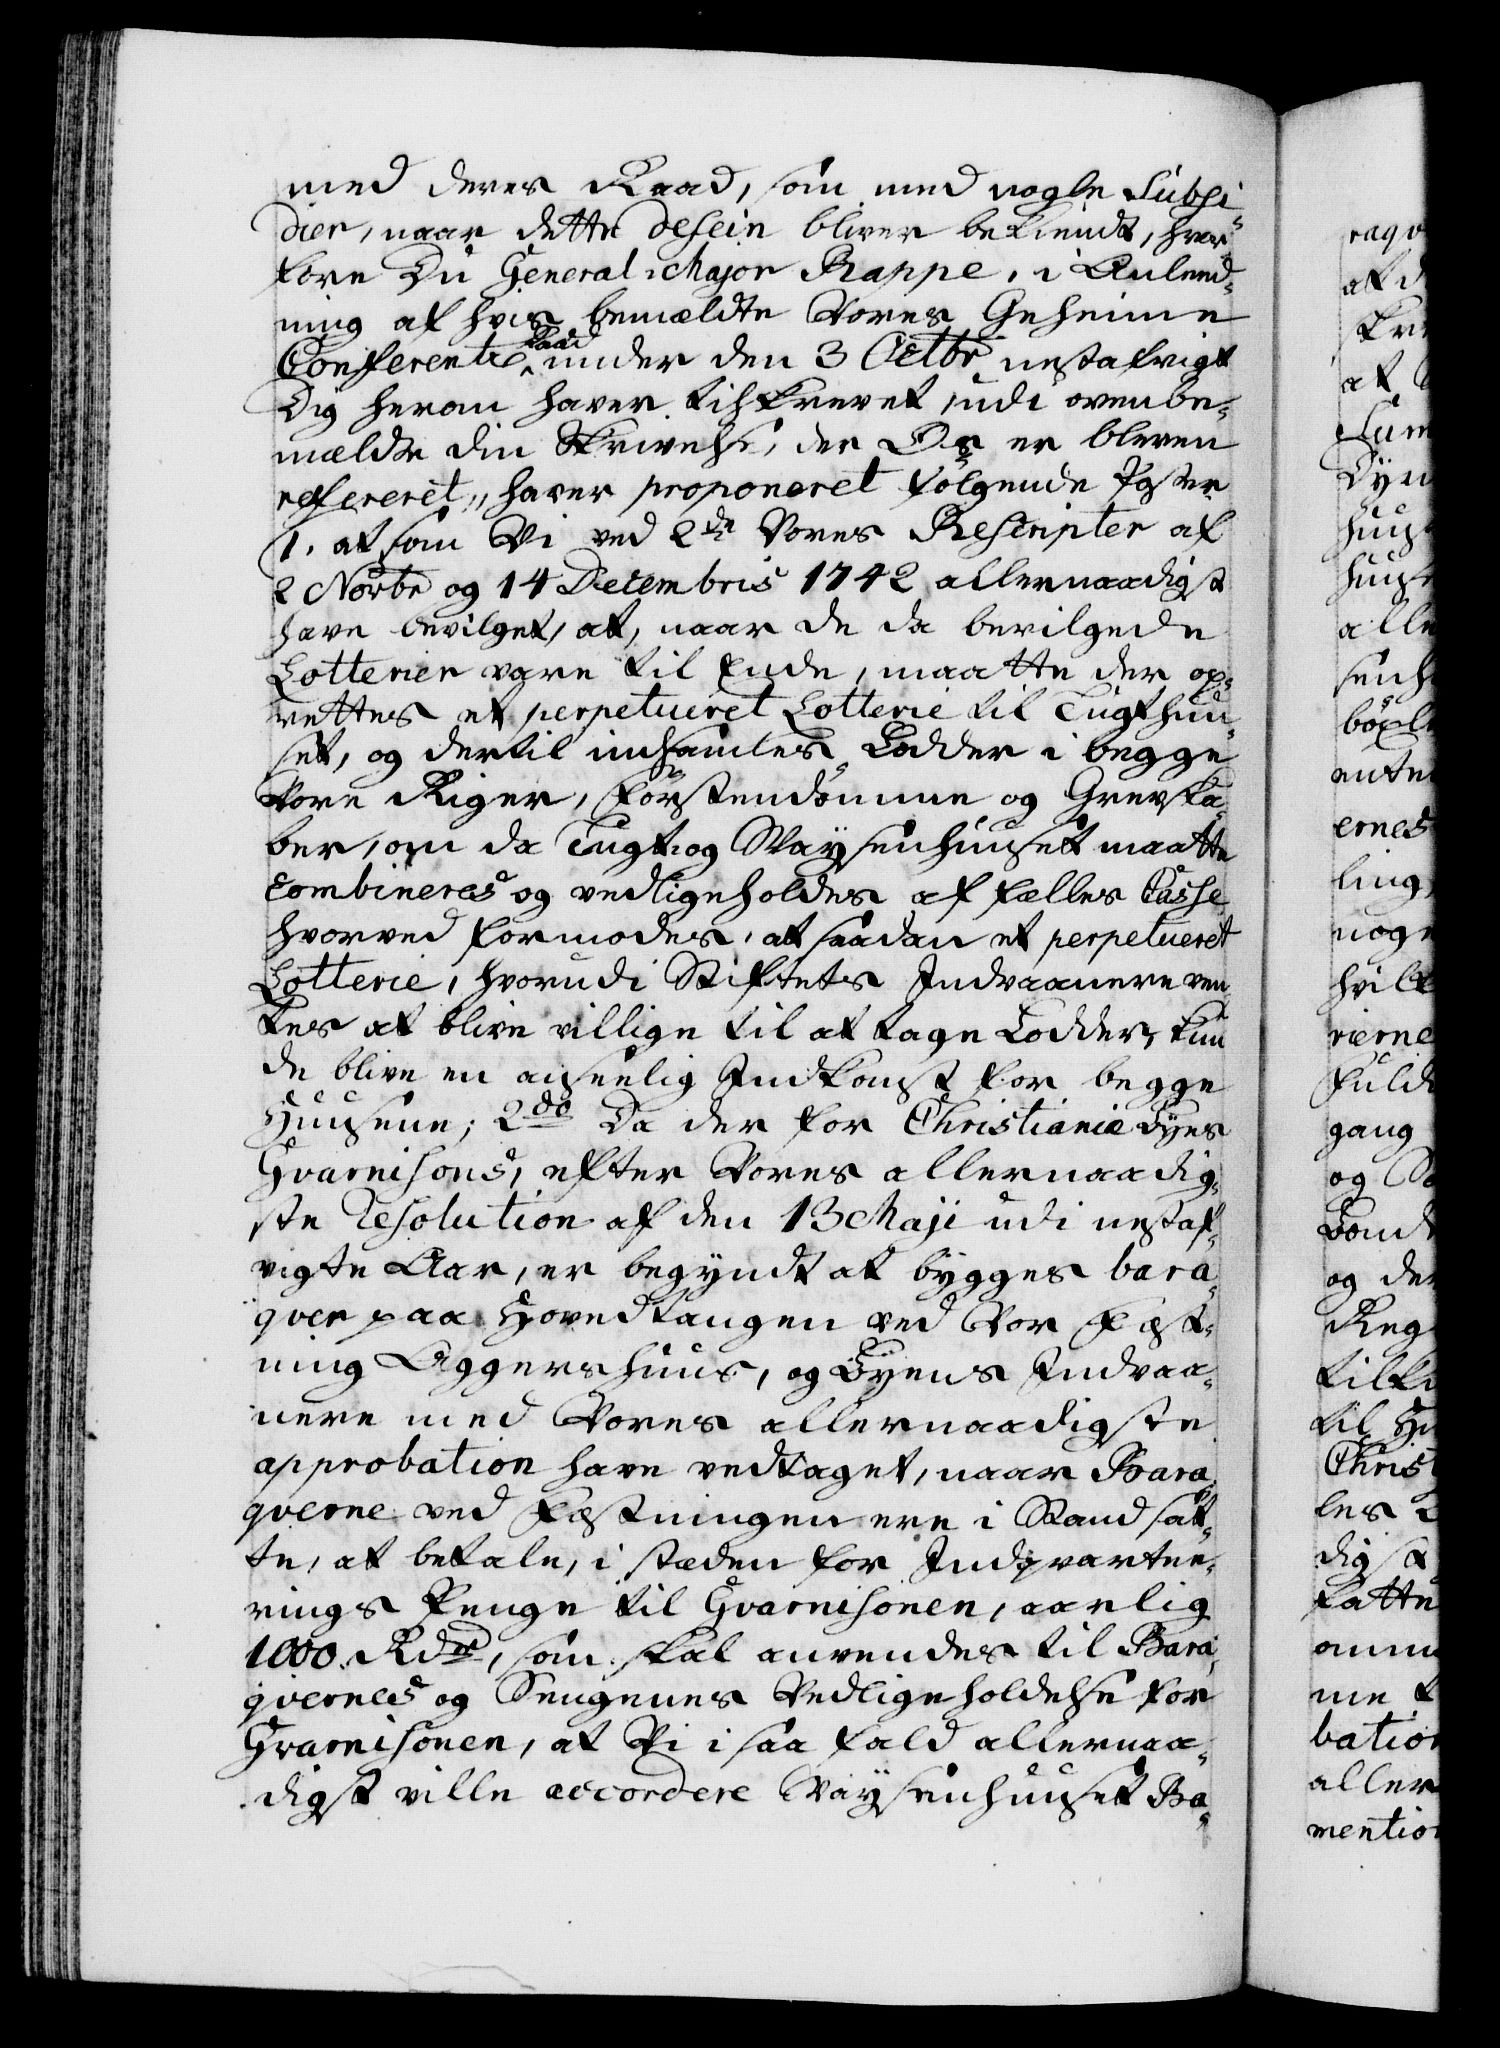 med deres Raad, som med nogle Subsi-
dier, naar dette desein bliver bekiendt, hvor-
fore Du General-Major Rappe, i Anleed-
ning af hvis bemældte Vores Geheime
Conferentz Raad under den 3 Octbr. nestafvigt
Dig herom haver tilskrevet, udi ovenbe-
mældte din Skrivelse, der Os er bleven
refereret, haver proponeret følgende Poster
1. at som Vi ved 2de Vores Rescripter af
2 Novbr og 14 Decembris 1742 allernaadigst
have bevilget, at, naar de da bevilgede
Lotterier vare til Ende, maatte der op-
rettes et perpetueret Lotterie til Tugthuu-
set, og dertil indsamles Lodder i begge
Vore Riger, Förstendömme og Grevska-
ber, om da Tugt- og Waysenhuuset maatte
combineres og vedligeholdes af fælles Casse
hvorved formodes, at saadan et perpetueret
Lotterie, hvorudi Stiftets Indvaanere ven-
tes at blive villige til at tage Lodder, kun-
de blive en anseelig Indkomst for begge
Huusene; 2do Da der for Christianiæ Byes
Gvarnisons, efter Vores allernaadig-
ste Resolution af den 13 Maji udi nestaf-
vigte Aar, er begyndt at bygges bara-
qver paa Hovedtangen ved Vor Fæst-
ning Aggershuus, og Byens Indvaa-
nere med Vores allernaadigste
approbation have vedtaget, naar Bara-
qverne ved Fæstningen ere i Stand sat-
te, at betale, i stæden for Indqvartee-
rings Penge til Gvarnisonen, aarlig
1000 Rdr, som skal anvendes til Bara-
qvernes og Sengenes Vedligeholdelse for
Gvarnisonen, at Vi i saa fald allernaa-
digst ville accordere Waysenhuuset Ba-
raqv
af d
at
Sum
huus
huuse
alle
ernes
ling
noge
hvilk
rierne
fuld
gang
og
og de
Reg
til
Christ
les
digst
bation
aller
mention